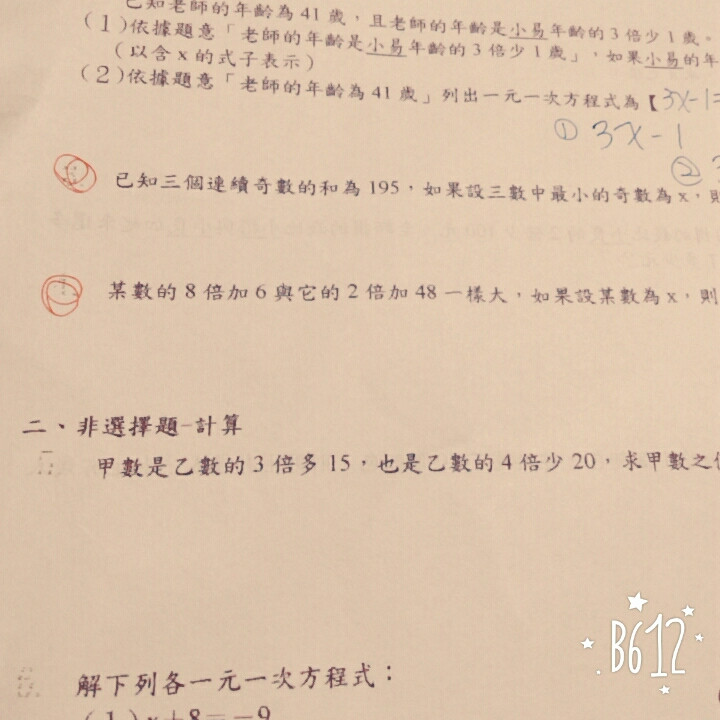 已知老師的年齡為41歲，且老師的年齡是小易年齡的3倍少1歲。
(1)依據題意「老師的年齡是小易年齡的3倍少1歲」，如果小易的年
(以含x的式子表示)
(2)依據題意「老師的年齡為41歲」列出一元一次方程式為【3x-1=
① 3x-1
②
已知三個連續奇數的和為195，如果設三數中最小的奇數為x，則
某數的8倍加6與它的2倍加48一樣大，如果設某數為x，則
二、非選擇題-計算
甲數是乙數的3倍多15，也是乙數的4倍少20，求甲數之
解下列各一元一次方程式：
(1)x+8=-9
B612